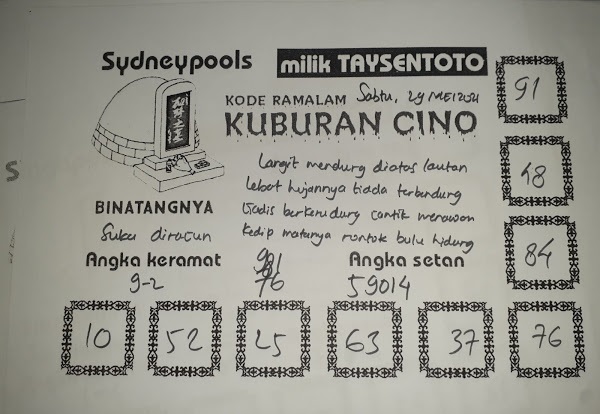 Sydneypools milik TAYSENTOTO
91
KODE RAMALAM Sabtu, 29 MEI 2021
KUBURAN CINO
Langit mendung diatas lautan
Lebat hujannya tiada terbendung
48
BINATANGNYA
Gadis berkerudung cantik menawan
Suka diracun
Kedip matanya rontok bulu hidung
84
Angka keramat
Angka setan
9-2
76
59014
10 52 25 63 37 76
S